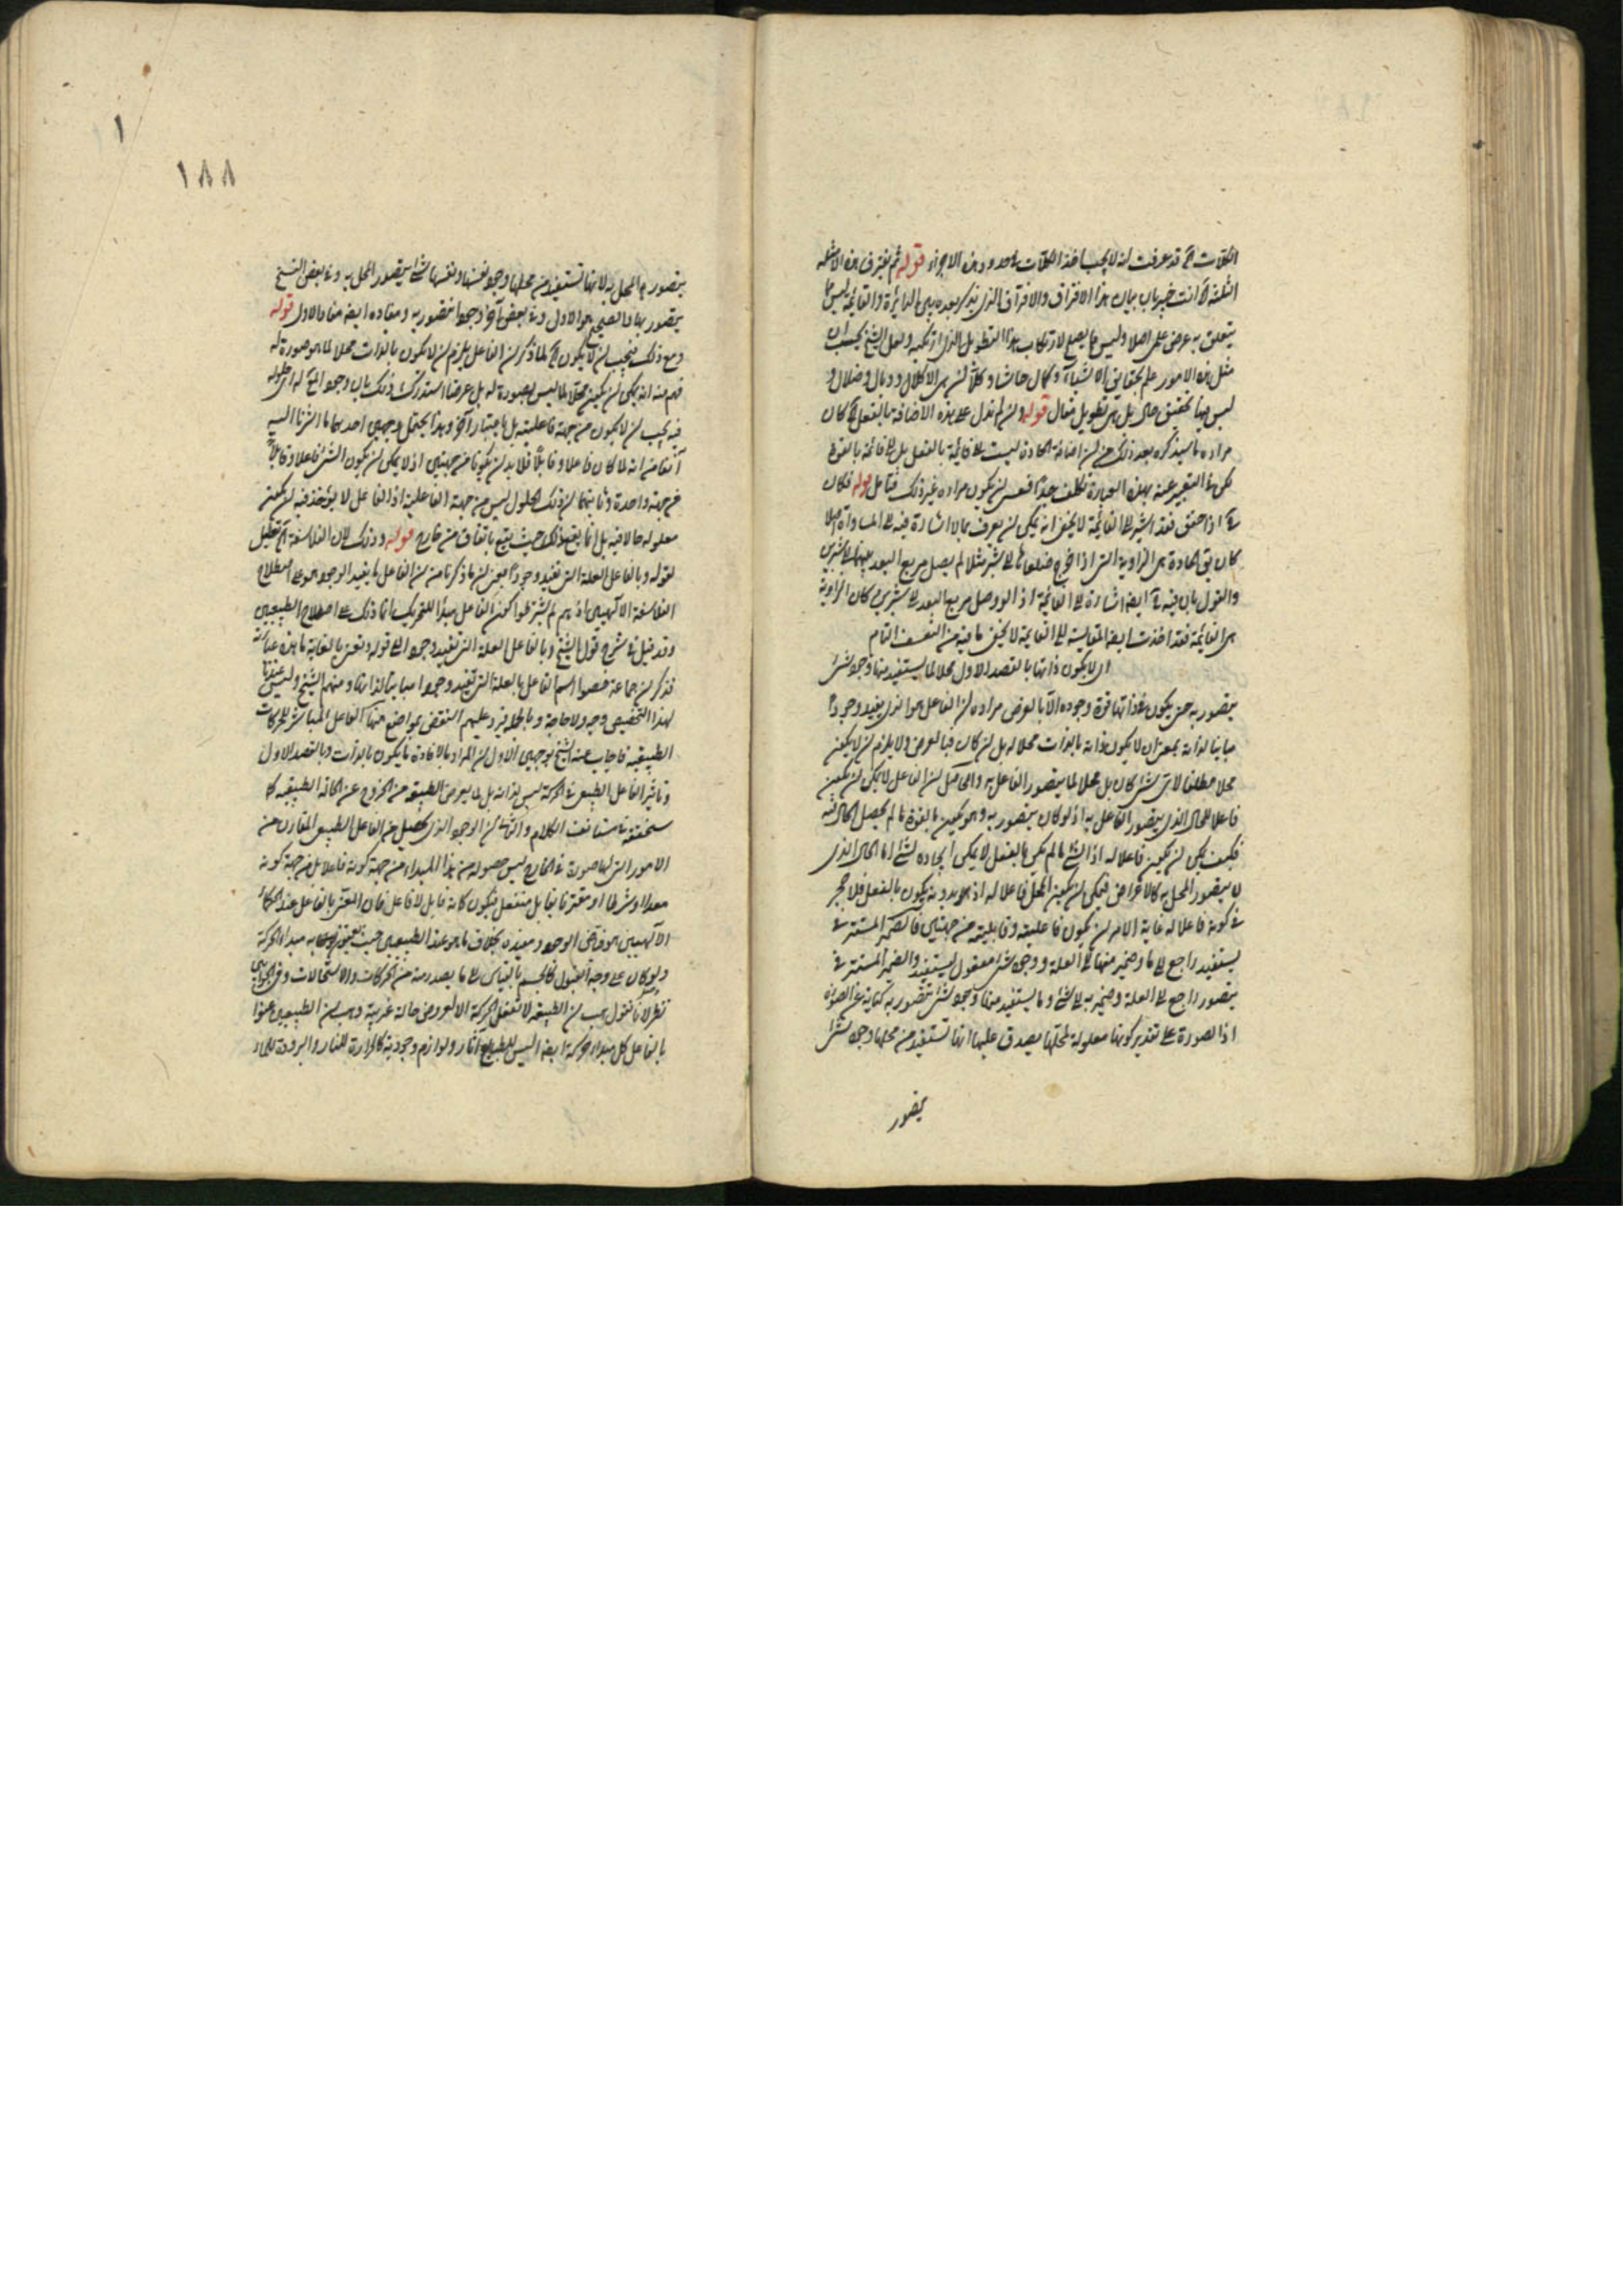 الكليات آه قد عرفت انه لا يجب اخذ الكليات في حدود هذه الاجزاء قوله ثم نعترف هذه الامثلة
الثلثة آه انت خبير بان بيان هذا الافتراق والافتراق الذي يذكر بعده بين الدائرة والقائمة ليس مما
يتعلق به غرض علمي اصلا وليس مما يصح لارتكاب هذا التطويل الذي ارتكبه ولعل الشيخ يحسب ان
مثل هذه الامور علم بحقايق الاشياء وكمال حاشا وكلا ان هي الا كلال ووبال وضلال و
ليس بهما تحقيق حال بل هي تطويل مقال قوله وان لم تدل على هذه الاضافة بالفعل آه كان
مراده ما سيذكره بعد ذلك من ان اضافة الحادة ليست الى قائمة بالفعل بل الى قائمة بالقوة
لكن في التعبير عنه بهذه العبارة تكلف جدا فعسى ان يكون مراده غير ذلك فتأمل قوله فكان
آه اذا حقق فقد اشير الى القائمة لا يخفى انه يمكن ان يعرف بما لا اشارة فيه الى المساواة اصلا
كان يق الحادة هي الزاوية التي اذا اخرج ضلعاها الى شبر مثلا لم يصل مربع البعد بينهما الى شبرين
والقول بان فيه آه ايضا اشارة الى القائمة اذ لو وصل مربع البعد الى شبرين كان الزاوية
هي القائمة فقد اخذت ايضا المقايسة الى القائمة لا يخفى ما فيه من التعسف التام
اي لا يكون ذاتها بالقصد الاول محلا لما يستفيد منها وجود شئ
يتصور به حتى يكون في ذاتها قوة وجوده الا بالعرض مراده ان الفاعل هو الذي يفيد وجودا
مباينا لذاته بمعنى ان لا يكون ذاته بالذات محلا له بل ان كان فبالعرض ولا يلزم ان لا يكون
محلا مطلقا لاي شئ كان بل محلا لما يتصور الفاعل به والحاصل ان الفاعل لا يمكن ان يكون
فاعلا للحال الذي يتصور الفاعل به اذ لو كان يتصور به وهو يكون بالقوة ما لم يحصل الحال فيه
فكيف يمكن ان يكون فاعلا له اذ الشئ ما لم يكن بالفعل لا يمكن ايجاده لشئ اما الحال الذي
لا يتصور المحل به كالاعراض فيمكن ان يكون المحل فاعلا له اذ هو بدونه يكون بالفعل فلا حجر
في كونه فاعلا له غاية الامر ان يكون فاعليته وقابليته من جهتين فالضمير المستتر في
يستفيد راجع الى ما وضمير منها الى العلة ووجود شئ مفعول يستفيد والضمير المستتر في
يتصور راجع الى العلة وضمير به الى شئ وما يستفيد منها وجود شئ يتصور به كناية عن الصورة
اذ الصورة على تقدير كونها معلولة لمحلها يصدق عليها انها تستفيد من محلها وجود شئ
يتصور
١
١٨٨
يتصور المحل به لانها تستفيد من محلها وجود نفسها ونفسها شئ يتصور المحل به وفي بعض النسخ
يتصور بها والصحيح هو الاول وفي بعض آخر وجودا يتصور به ومفاده ايضا مفاد الاول قوله
ومع ذلك فيجب ان لا يكون آه لما ذكر ان الفاعل يلزم ان لا يكون بالذات محلا لما هو صورة له
فهم منه انه يمكن ان يكون محلا لما ليس بصورة له بل عرضا استدرك ذلك بان وجود المح له اي حلوله
فيه يجب ان لا يكون من جهة فاعليته بل باعتبار آخر وهذا يحتمل وجهين احدهما ما اشرنا اليه
آنفا من انه لما كان فاعلا وقابلا فلا بد ان يكونا من جهتين اذ لا يمكن ان يكون الشئ فاعلا وقابلا
من جهة واحدة وثانيهما ان ذلك الحلول ليس من جهة الفاعلية اذ الفاعل لا يؤخذ فيه ان يكون
معلوله حالا فيه بل انما يقع ذلك حيث يقع باتفاق من خارج قوله وذلك لان الفلاسفة آه تعليل
لقوله وبالفاعل العلة التي تفيد وجودا فيعني ان ما ذكرنا من ان الفاعل ما يفيد الوجود هو على اصطلاح
الفلاسفة الالهيين اذ هم لم يشترطوا كون الفاعل مبدأ للتحريك انما ذلك على اصطلاح الطبيعيين
وقد قيل في شرح قول الشيخ وبالفاعل العلة التي تفيد وجودا الى قوله ونعني بالغاية ما هذه عبارته
فذكر ان جماعة خصوا اسم الفاعل بالعلة التي تفيد وجودا مباينا لذاتها ومنهم الشيخ وليس عندنا
لهذا التخصيص وجه ولا حاجة وبالجملة يرد عليهم النقض بمواضع منها الفاعل المباشر للحركات
الطبيعية فاجاب عنه الشيخ بوجهين الاول ان المراد بالافادة ما يكون بالذات وبالقصد الاول
وتاثير الفاعل الطبيعي في الحركة ليس لذاته بل لما يعرض الطبيعة من الخروج عن الحالة الطبيعية كما
سنحققه في مستانف الكلام والثاني ان الوجود الذي يحصل من الفاعل الطبيعي المقارن من
الامور التي لها صورة في الخارج ليس حصوله من هذا المبدأ من جهة كونه فاعلا بل من جهة كونه
معدا او شرطا او مقترنا بقابل منفعل فيكون كانه قابل لا فاعل فان المعتبر بالفاعل عند الحكماء
الالهيين هو فائض الوجود ومفيده بخلاف ما هو عند الطبيعيين حيث يعنون به مبدأ الحركة
ولو كان على وجه القبول كالجسم بالقياس الى ما يصدر منه من الحركات والاستحالات وفي الجوابين
نظر لانا نقول هب ان الطبيعة لا تفعل الحركة الا لعروض حالة غريبة وهب ان الطبيعيين عنوا
بالفاعل كل مبدأ حركة ايضا اليس للطبايع آثار ولوازم وجودية كالحرارة للنار والبرودة للماء